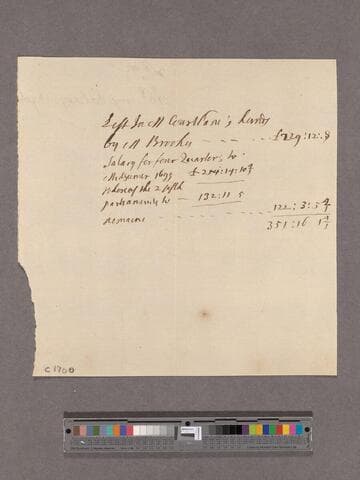 Left In Mr Courtlan's hands
by Mr Brooks - - - £229:12:8
Salary for four Quarters to
Midsumer 1699 £254:14:10¾
whereof the
132:11 5
122:3:5¾
remains - - - 351:16 1¾
C 1700